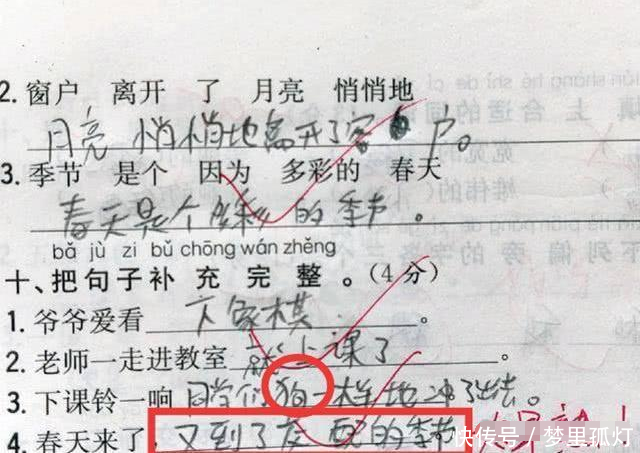 2. 窗户 离开 了 月亮 悄悄地
月亮悄悄地离开了窗户。
3. 季节 是个 因为 多彩的 春天
春天是个多彩的季节。
bǎ jù zi bǔ chōng wán zhěng
十、把句子补充完整。(4分)
1. 爷爷爱看下象棋。
2. 老师一走进教室就上课了。
3. 下课铃一响同学们狗一样地冲了出去。
4. 春天来了,又到了交配的季节
快传号 / 梦里孤灯